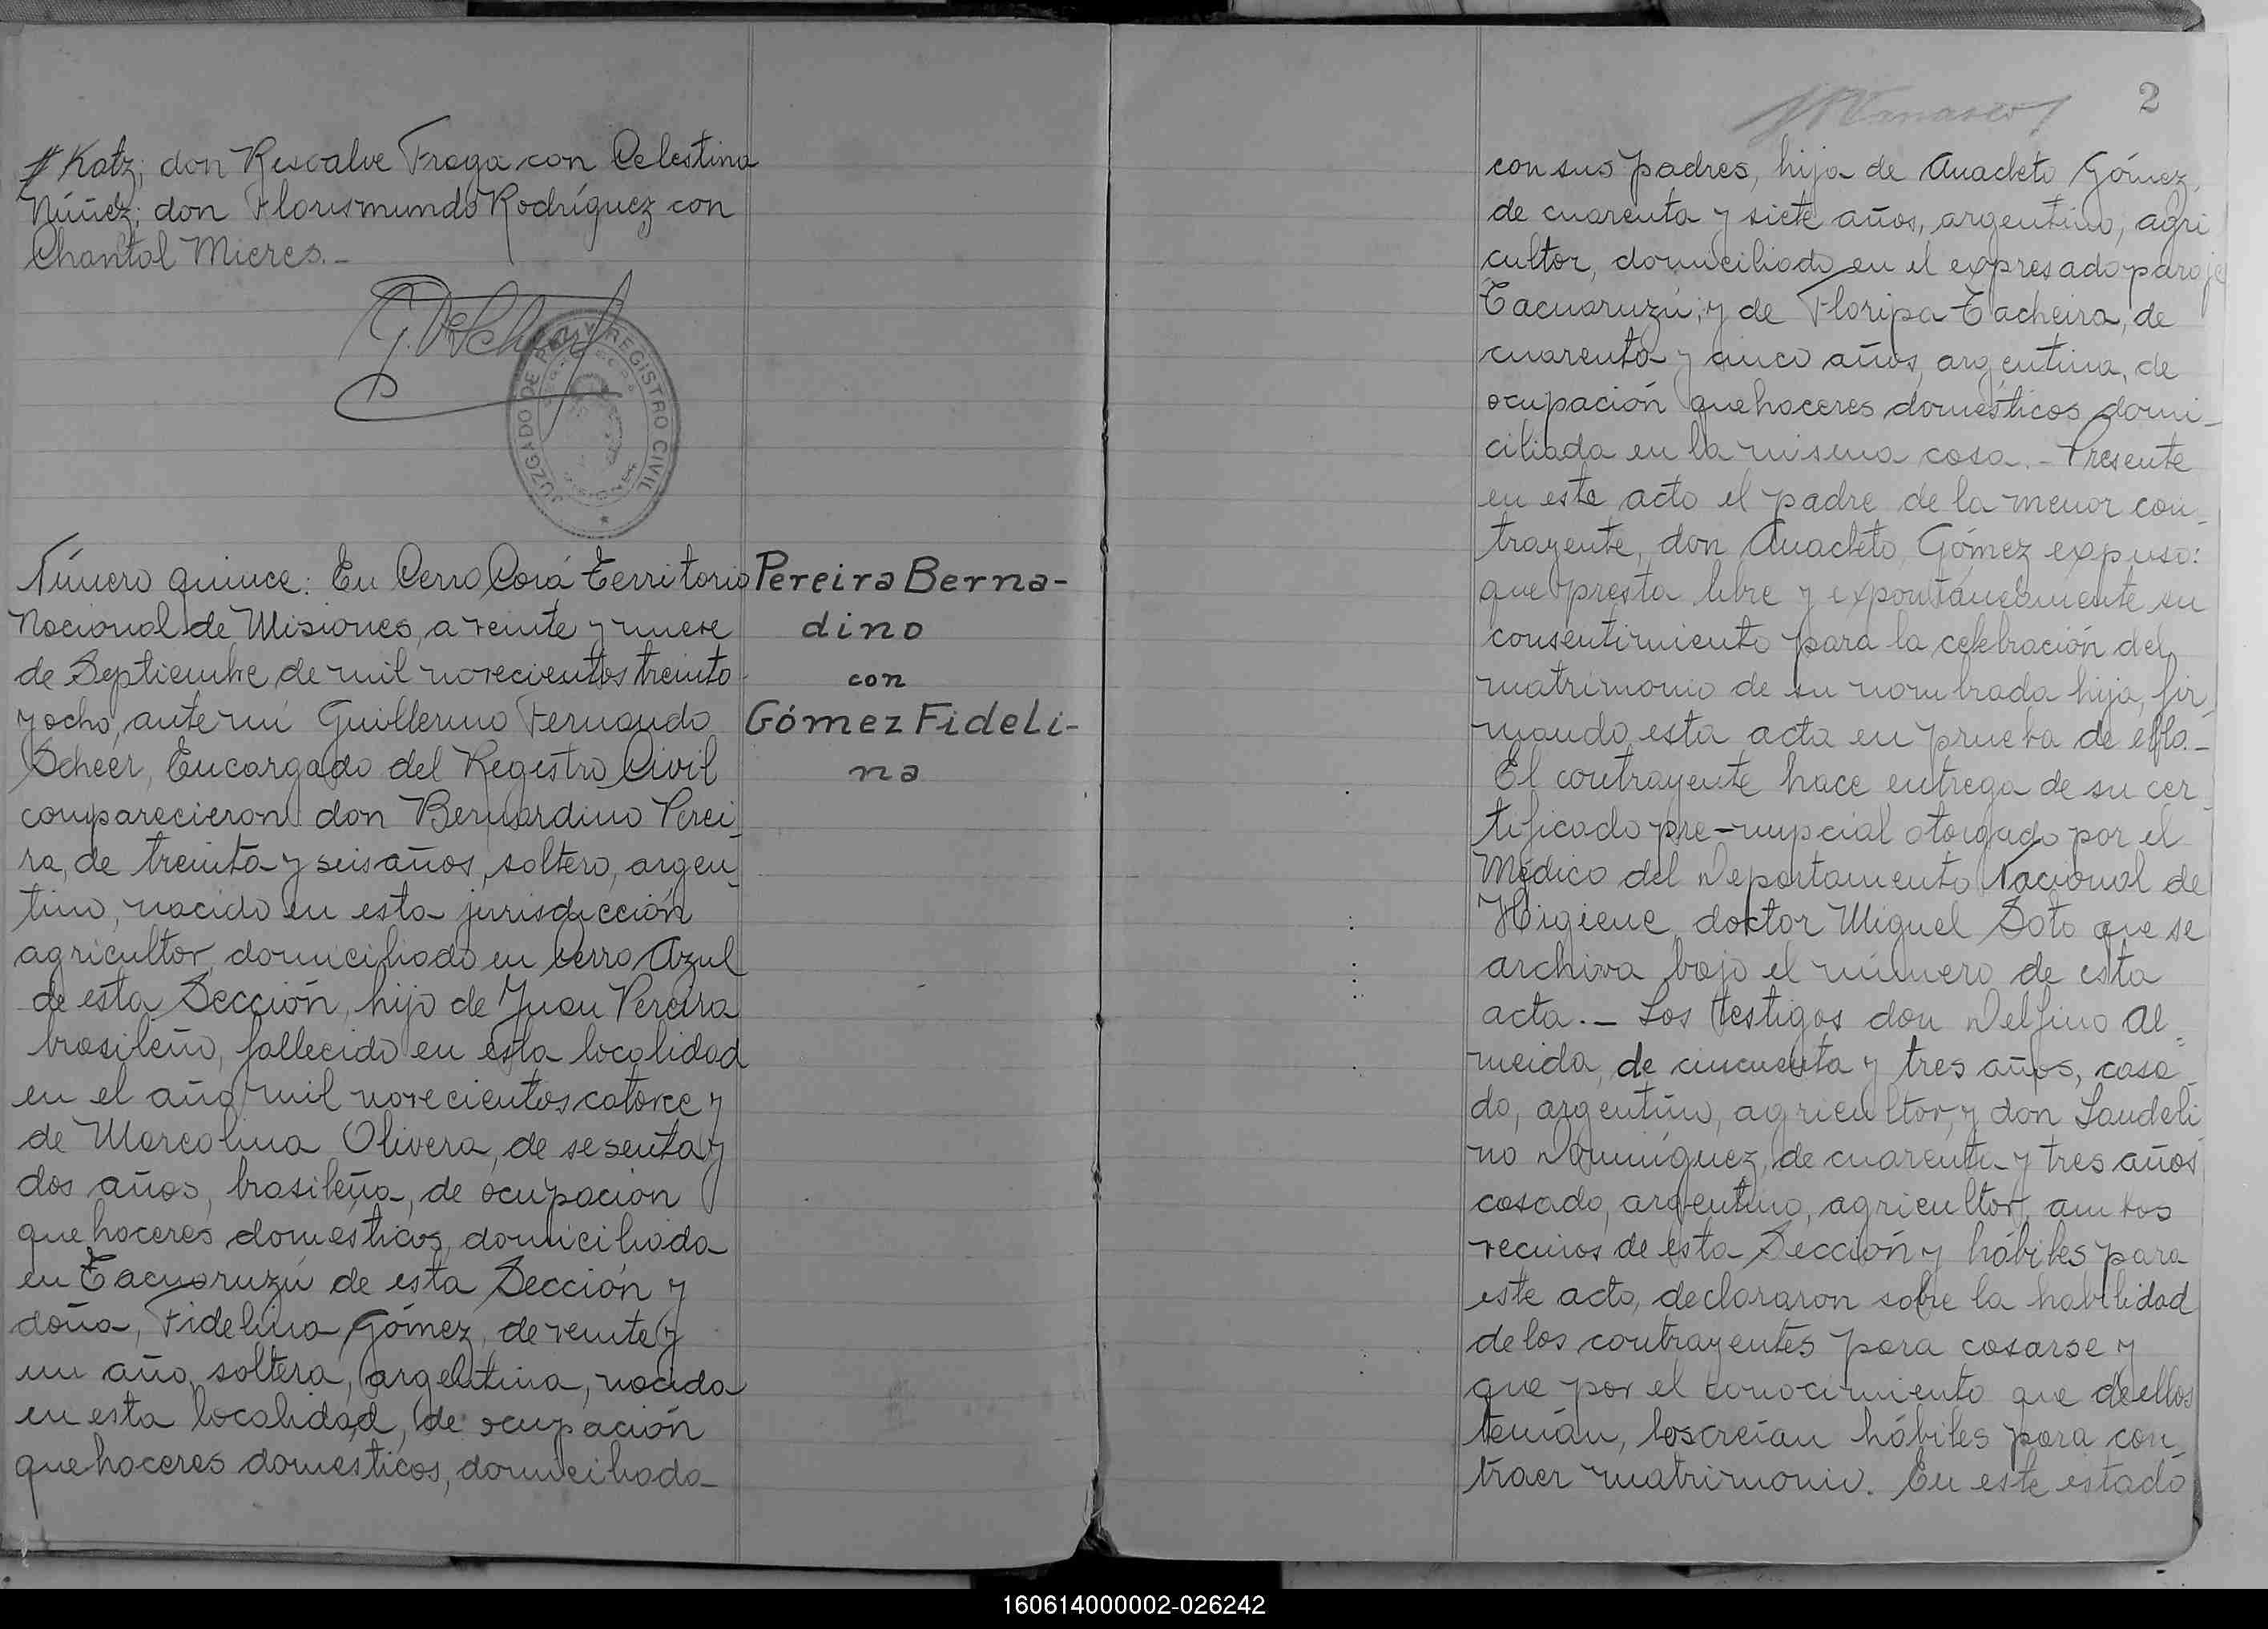 Katz; don Rescalve Fraga con Celestina
Núñez; don Florismundo Rodríguez con
Chantal Mieres.-
JUZGADO DE PAZ Y REGISTRO CIVIL
Número quince: En Cerro Corá Territorio
Nacional de Misiones, a veinte y nueve
de Septiembre de mil novecientos treinta
y ocho, ante mí Guillermo Fernando
Scheer, Encargado del Registro Civil
comparecieron: don Bernardino Perei-
ra, de treinta y seis años, soltero, argen-
tino, nacido en esta jurisdicción
agricultor, domiciliado en Cerro Azul
de esta Sección, hijo de Juan Pereira
brasileño, fallecido en esta localidad
en el año mil novecientos catorce y
de Marcolina Olivera, de sesenta y
dos años, brasileña, de ocupación
quehaceres domésticos, domiciliada
en Tacuaruzú de esta Sección y
doña, Fidelina Gómez, de veinte y
un año, soltera, argentina, nacida
en esta localidad, de ocupación
quehaceres domésticos, domiciliada
Pereira Berna-
dino
con
Gómez Fideli-
na
2
con sus padres, hija de Anacleto Gómez,
de cuarenta y siete años, argentino, agri
cultor, domiciliado en el expresado paraje
Tacuaruzú; y de Floripa Tacheira, de
cuarenta y cinco años, argentina, de
ocupación quehaceres domésticos domi-
ciliada en la misma casa.- Presente
en este acto el padre de la menor con-
trayente, don Anacleto, Gómez expuso:
que presta libre y expontáneamente su
consentimiento para la celebración del
matrimonio de su nombrada hija, fir-
mando esta acta en prueba de ello.-
El contrayente hace entrega de su cer-
tificado pre-nupcial otorgado por el
Médico del Departamento Nacional de
Higiene doctor Miguel Soto que se
archiva bajo el número de esta
acta.- Los testigos don Delfino Al-
meida, de cincuenta y tres años, casa
do, argentino, agricultor, y don Laudeli
no Domínguez, de cuarenta y tres años
casado, argentino, agricultor, ambos
vecinos de esta Sección y hábiles para
este acto, declararon sobre la habilidad
de los contrayentes para casarse y
que por el conocimiento que de ellos
tenían, los creían hábiles para con-
traer matrimonio. En este estado
160614000002-026242